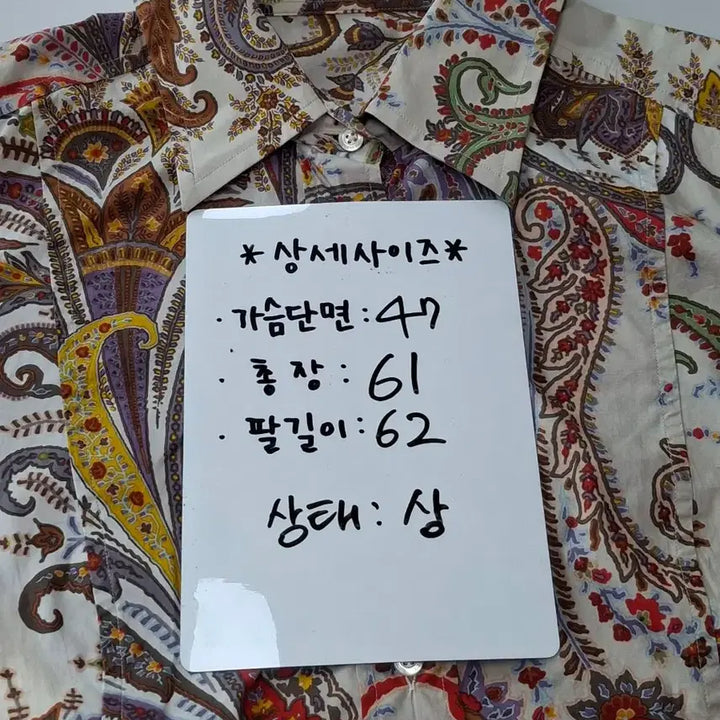 *상세사이즈*
· 가슴단면 : 47
· 총장 : 61
· 팔길이 : 62
상태 : 상